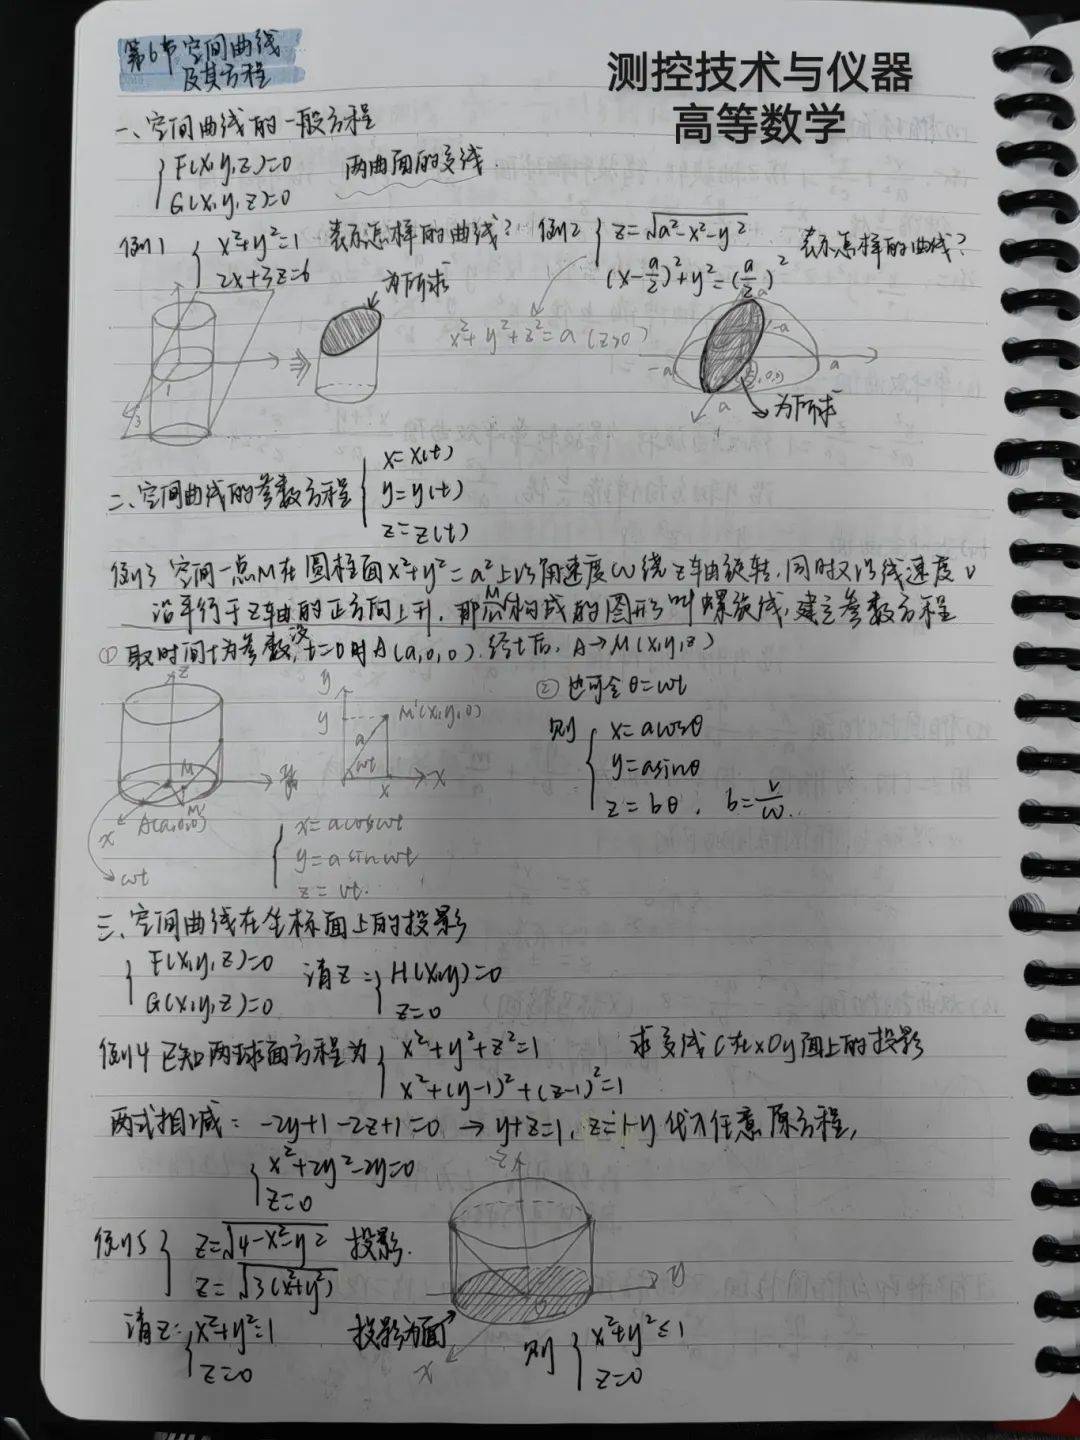 第6节 空间曲线
及其方程
测控技术与仪器
高等数学
一、空间曲线的一般方程
{ F(x,y,z)=0
G(x,y,z)=0
两曲面的交线
例1 { x²+y²=1
2x+3z=6
表示怎样的曲线?
例2 { z=√a²-x²-y²
(x-a/2)²+y²=(a/2)²
表示怎样的曲线?
为所求
x²+y²+z²=a (z≥0)
1
3
-a
a
a
为所求
二、空间曲线的参数方程 { x=x(t)
y=y(t)
z=z(t)
例3 空间一点M在圆柱面x²+y²=a²上以角速度ω绕z轴旋转,同时又以线速度v
沿平行于z轴的正方向上升,那么M构成的图形叫螺旋线,建立参数方程
① 取时间t为参数,设t=0时A(a,0,0).经t后,A→M(x,y,z)
z
M
M'
x
A(a,0,0)
ωt
y
y
M'(x,y,0)
a
ωt
x
x
{ x=acosωt
y=asinωt
z=vt.
② 也可令θ=ωt
则 { x=acosθ
y=asinθ
z=bθ, b=v/ω.
三、空间曲线在坐标面上的投影
{ F(x,y,z)=0
G(x,y,z)=0
消z= { H(x,y)=0
z=0
例4 已知两球面方程为 { x²+y²+z²=1
x²+(y-1)²+(z-1)²=1
求交线C在xOy面上的投影
两式相减: -2y+1-2z+1=0 → y+z=1, z=1-y代入任意原方程,
{ x²+2y²-2y=0
z=0
例5 { z=√4-x²-y²
z=√3(x²+y²)
投影.
消z= { x²+y²=1
z=0
投影为面
z
y
x
则 { x²+y²≤1
z=0